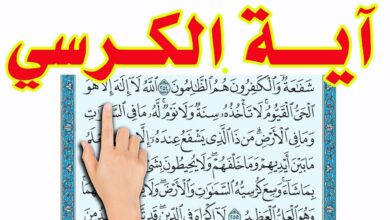 آيـــة الكرسي
شَفَٰعَةٌ ۗ وَٱلْكَٰفِرُونَ هُمُ ٱلظَّٰلِمُونَ ٢٥٤ ٱللَّهُ لَآ إِلَٰهَ إِلَّا هُوَ
ٱلْحَىُّ ٱلْقَيُّومُ ۚ لَا تَأْخُذُهُۥ سِنَةٌ وَلَا نَوْمٌ ۚ لَّهُۥ مَا فِى ٱلسَّمَٰوَٰتِ
وَمَا فِى ٱلْأَرْضِ ۗ مَن ذَا ٱلَّذِى يَشْفَعُ عِندَهُۥٓ إِلَّا
مَا بَيْنَ أَيْدِيهِمْ وَمَا خَلْفَهُمْ ۖ وَلَا يُحِيطُونَ
بِمَا شَآءَ ۚ وَسِعَ كُرْسِيُّهُ ٱلسَّمَٰوَٰتِ وَٱلْأَرْضَ ۖ
وَهُوَ ٱلْعَلِىُّ ٱلْعَظِيمُ ٢٥٥ لَآ إِكْرَاهَ فِى ٱلدِّينِ ۖ